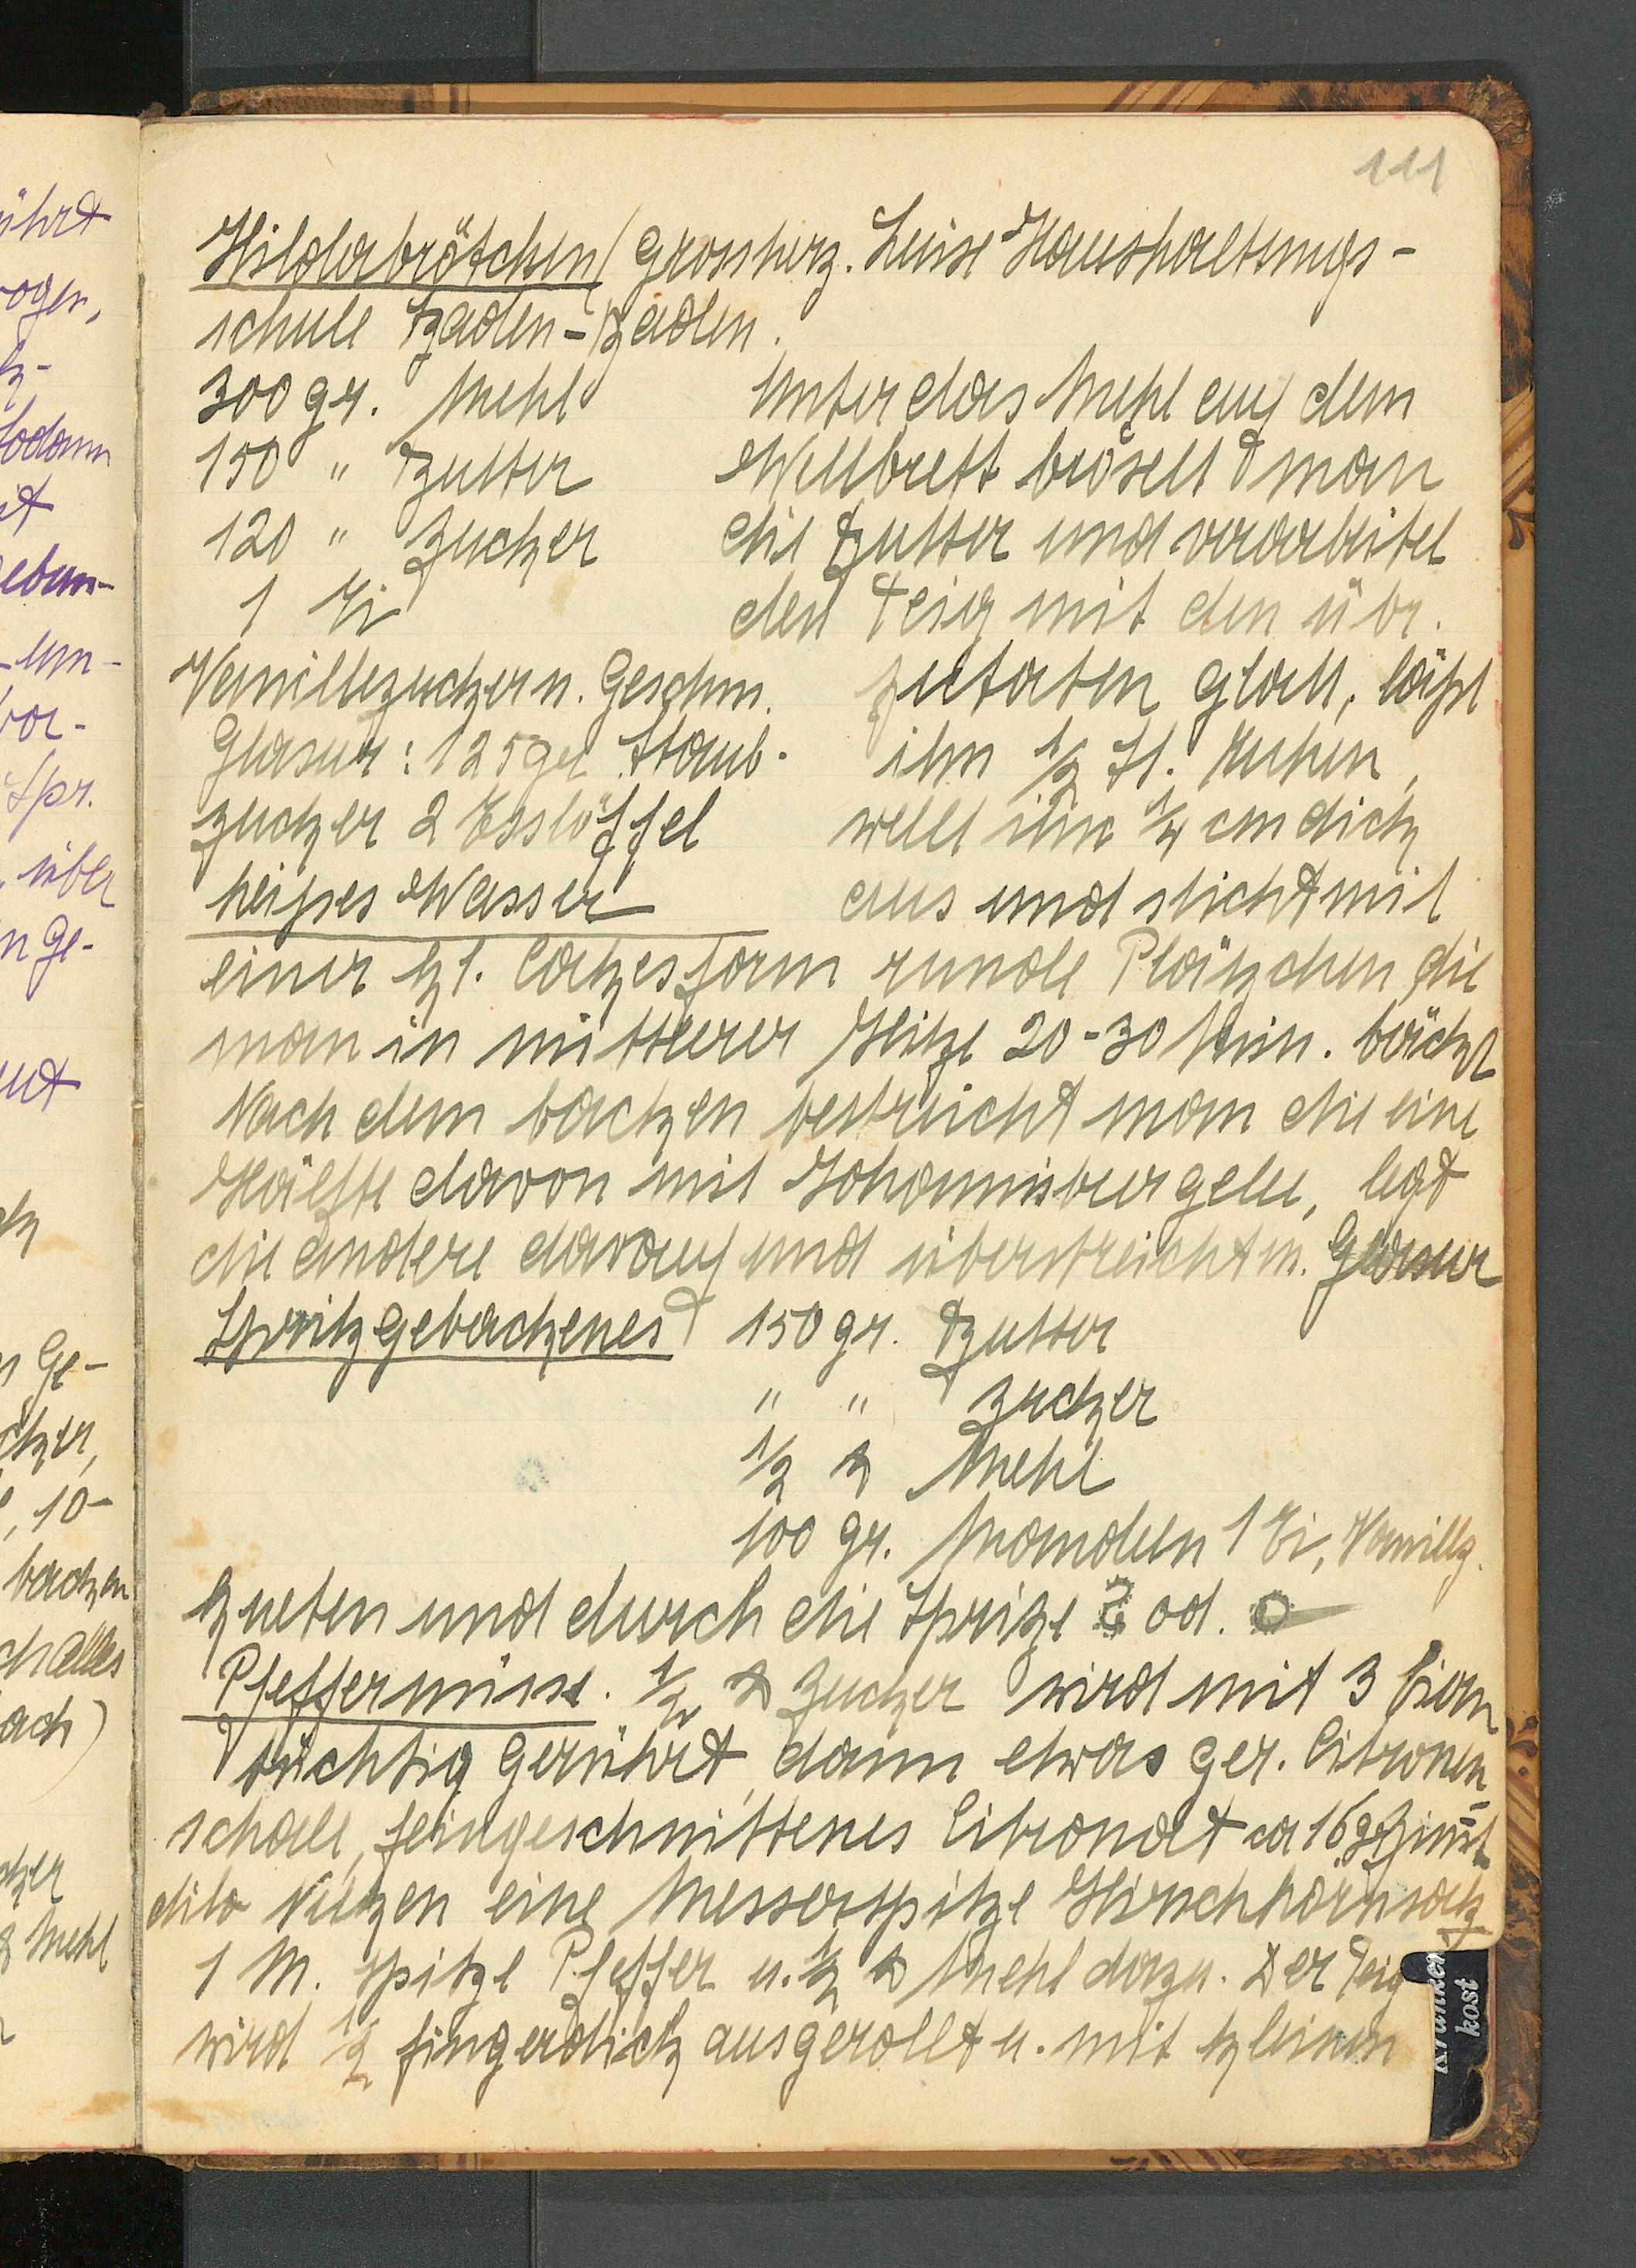 111
Hildabrötchen (Grossherz. Luise Haushaltungs-
schule Baden-Baden.
300 gr. Mehl
150 " Butter
120 " Zucker
1 Ei
Vanillezucker n. Geschm.
Glasur: 125 gr Staub-
zucker 2 Esslöffel
heißes Wasser
Unter das Mehl auf dem
Wellbrett bröselt man
die Butter und verarbeitet
den Teig mit den übr.
Zutaten glatt, läßt
ihn 1/2 St. ruhen,
wellt ihn 1/4 cm dick
aus und sticht mit
einer kl. Cakesform runde Plätzchen die
man in mittlerer Hitze 20-30 Min. bäckt
Nach dem backen bestreicht man die eine
Hälfte davon mit Johannisbeergelee, legt
die andere darauf und überstreicht m. Glasur
Spritzgebackenes 150 gr. Butter
" " Zucker
1/2 ℔ Mehl
100 gr. Mandeln 1 Ei, Vanillz.
kneten und durch die Spritze od.
Pfeffernüsse. 1/2 ℔ Zucker wird mit 3 Eiern
tüchtig gerührt, dann etwas ger. Citronen-
schale, feingeschnittenes Citronat ca 16 gr Zimmt
dito Nelken eine Messerspitze Hirschhornsalz
1 M. spitze Pfeffer u. 1/2 ℔ Mehl dazu. Der Teig
wird 1/2 fingerdick ausgerollt u. mit kleinen
Kranken
kost
ührt
Spr.
über
n Ge-
n Ge-
, 10-
backen
ch alles
ach)
Mehl